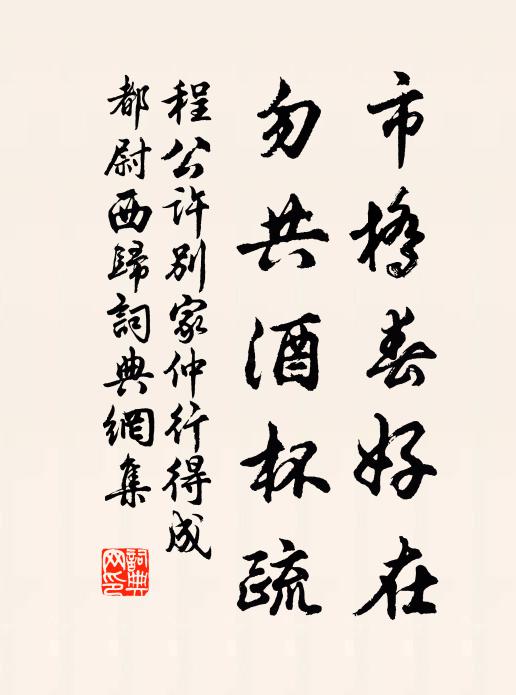 市橋春好在
勿共酒杯疏
程公許別家仲行得成
都尉西歸詞典網集
詞典
网印